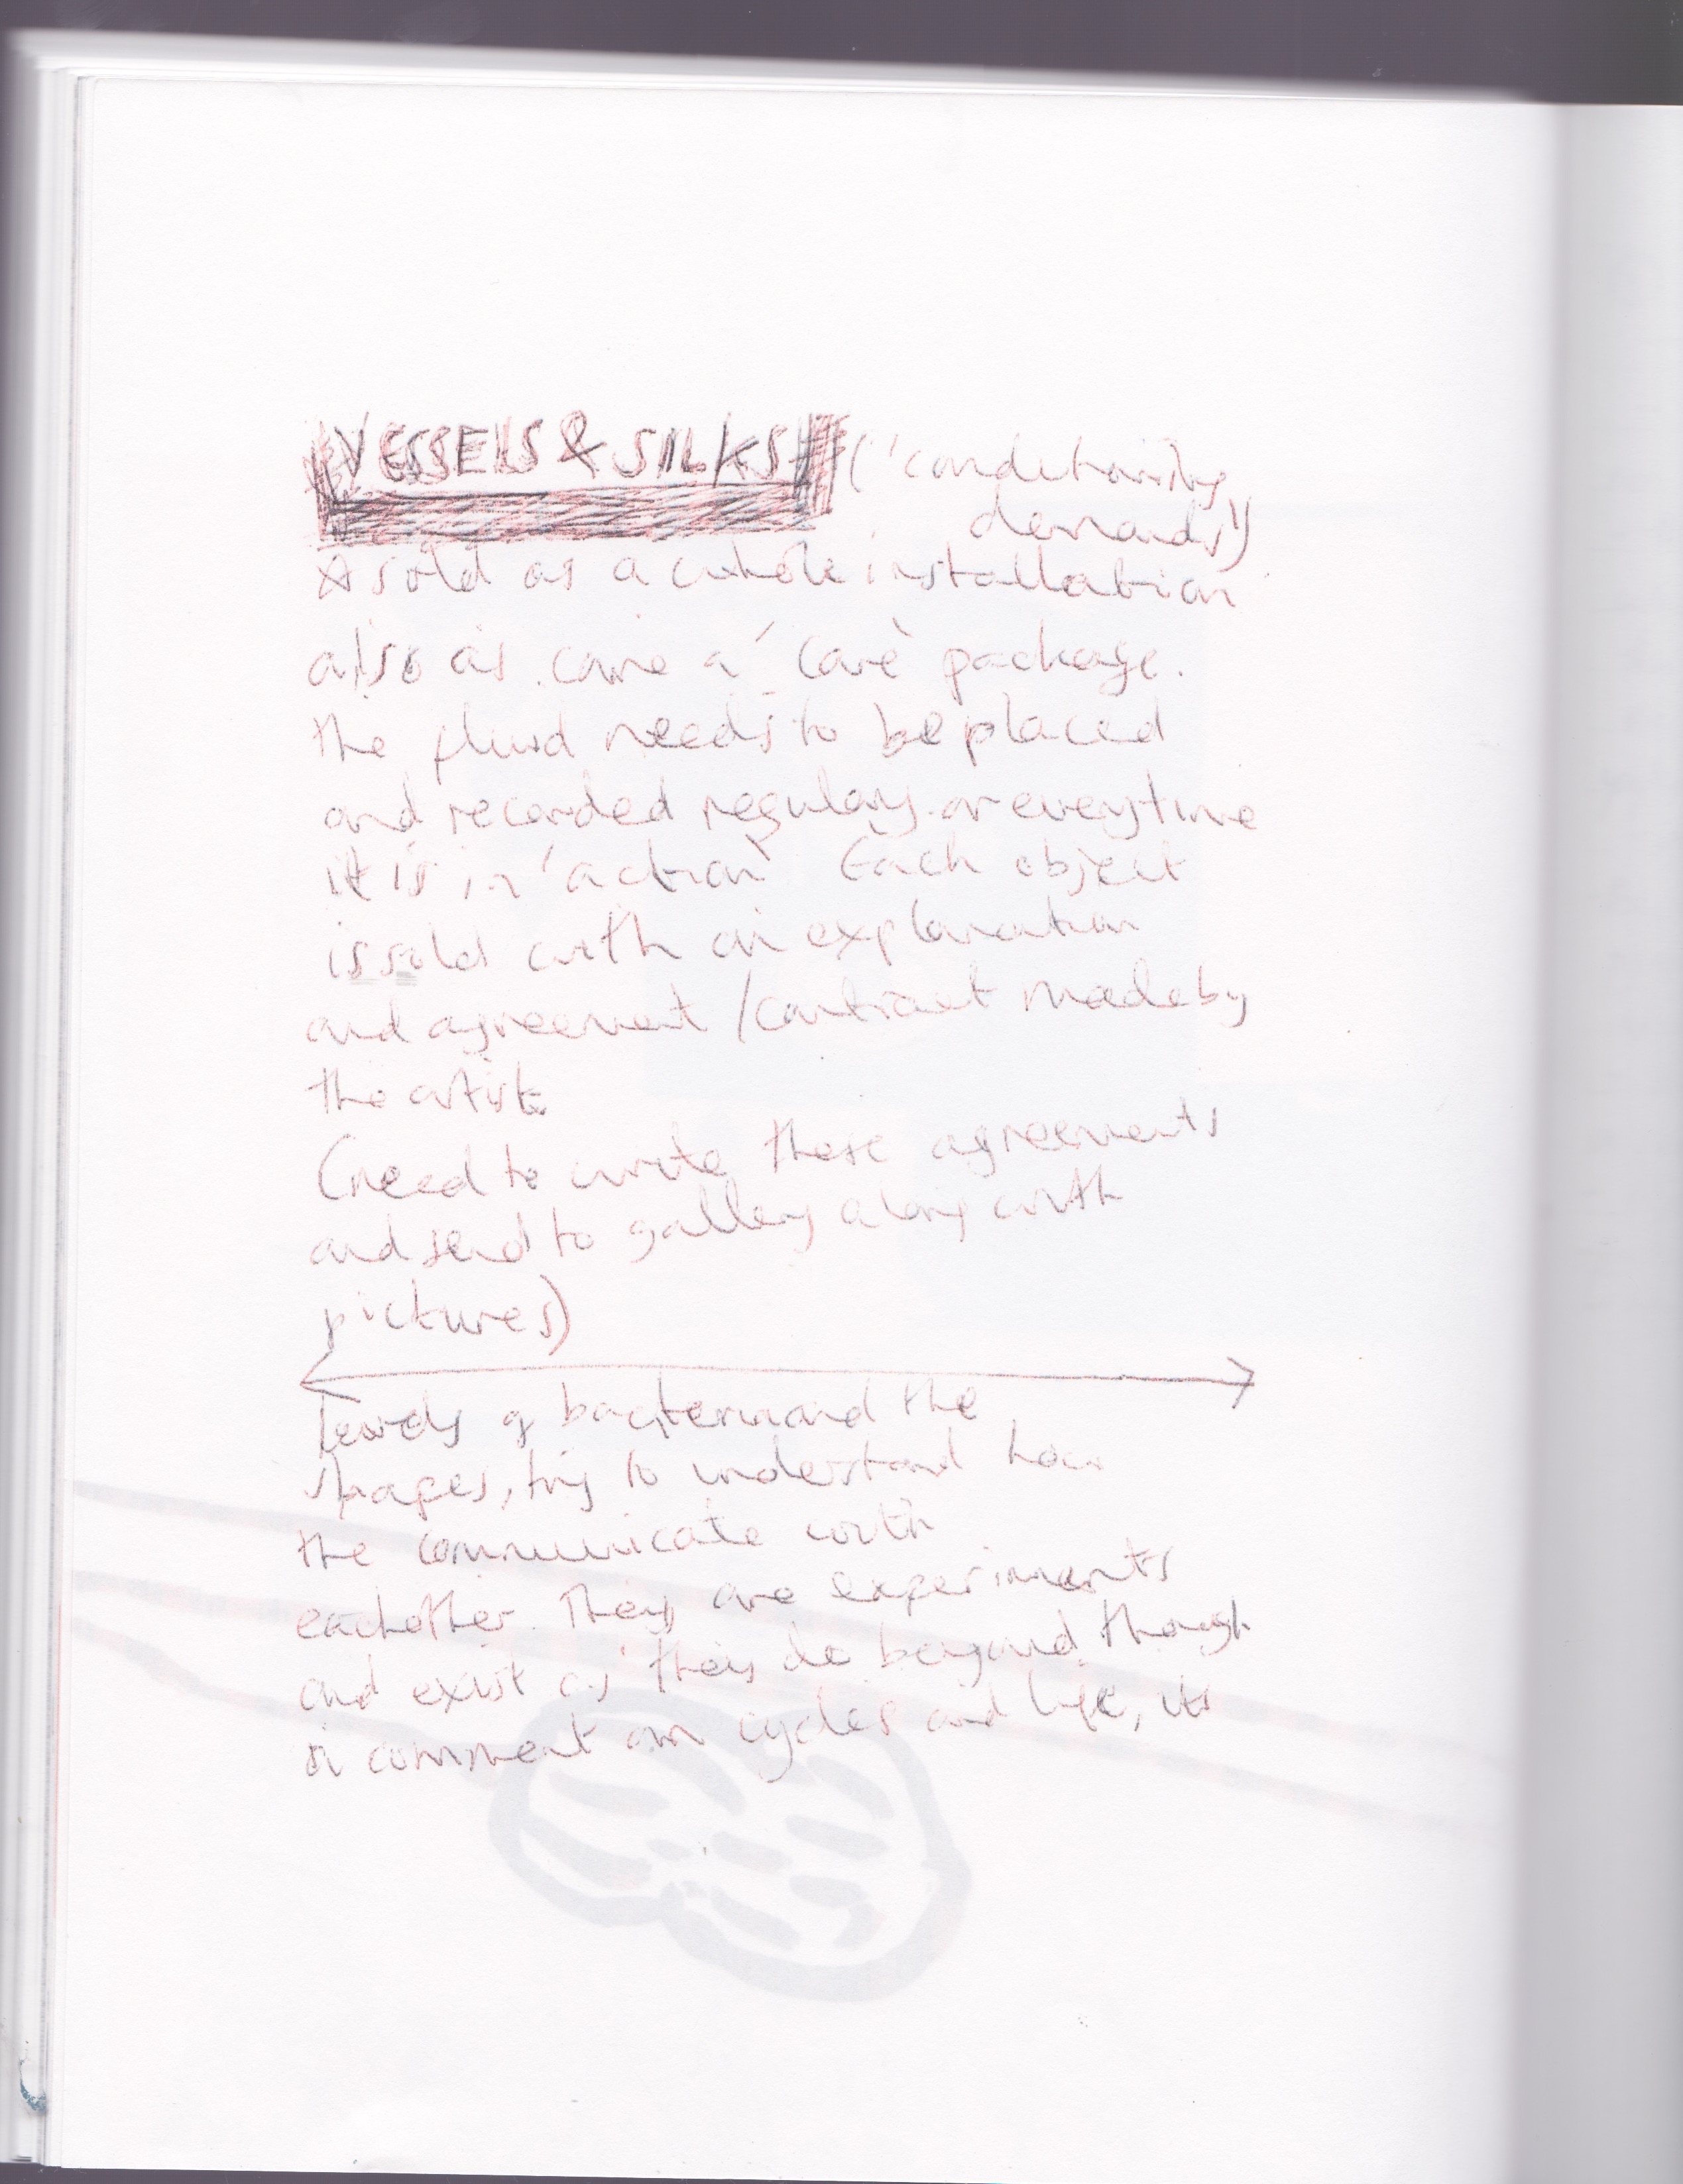 VESSELS & SILKS ('conditioning
demands')
A sold as a whole installation
also as came a 'care' package.
the fluid needs to be placed
and recorded regulary or everytime
it is in 'action' Each object
is sold with an explanation
and agreement / contract made by
the artist.
(need to write these agreements
and send to gallery along with
pictures)
of bacteria and the
shapes, try to understand how
the communicate with
eachother. They are experiments
and exist as they do beyond though
a comment on cycles and life, its